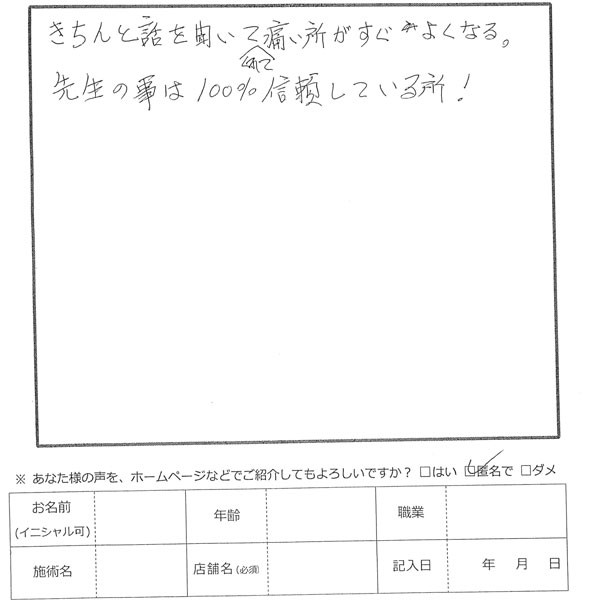 きちんと話を聞いて痛い所がすぐよくなる。
先生の事は100%信頼している所！
※ あなた様の声を、ホームページなどでご紹介してもよろしいですか？ □はい □匿名で □ダメ
お名前 年齢 職業
(イニシャル可)
施術名 店舗名(必須) 記入日 年 月 日